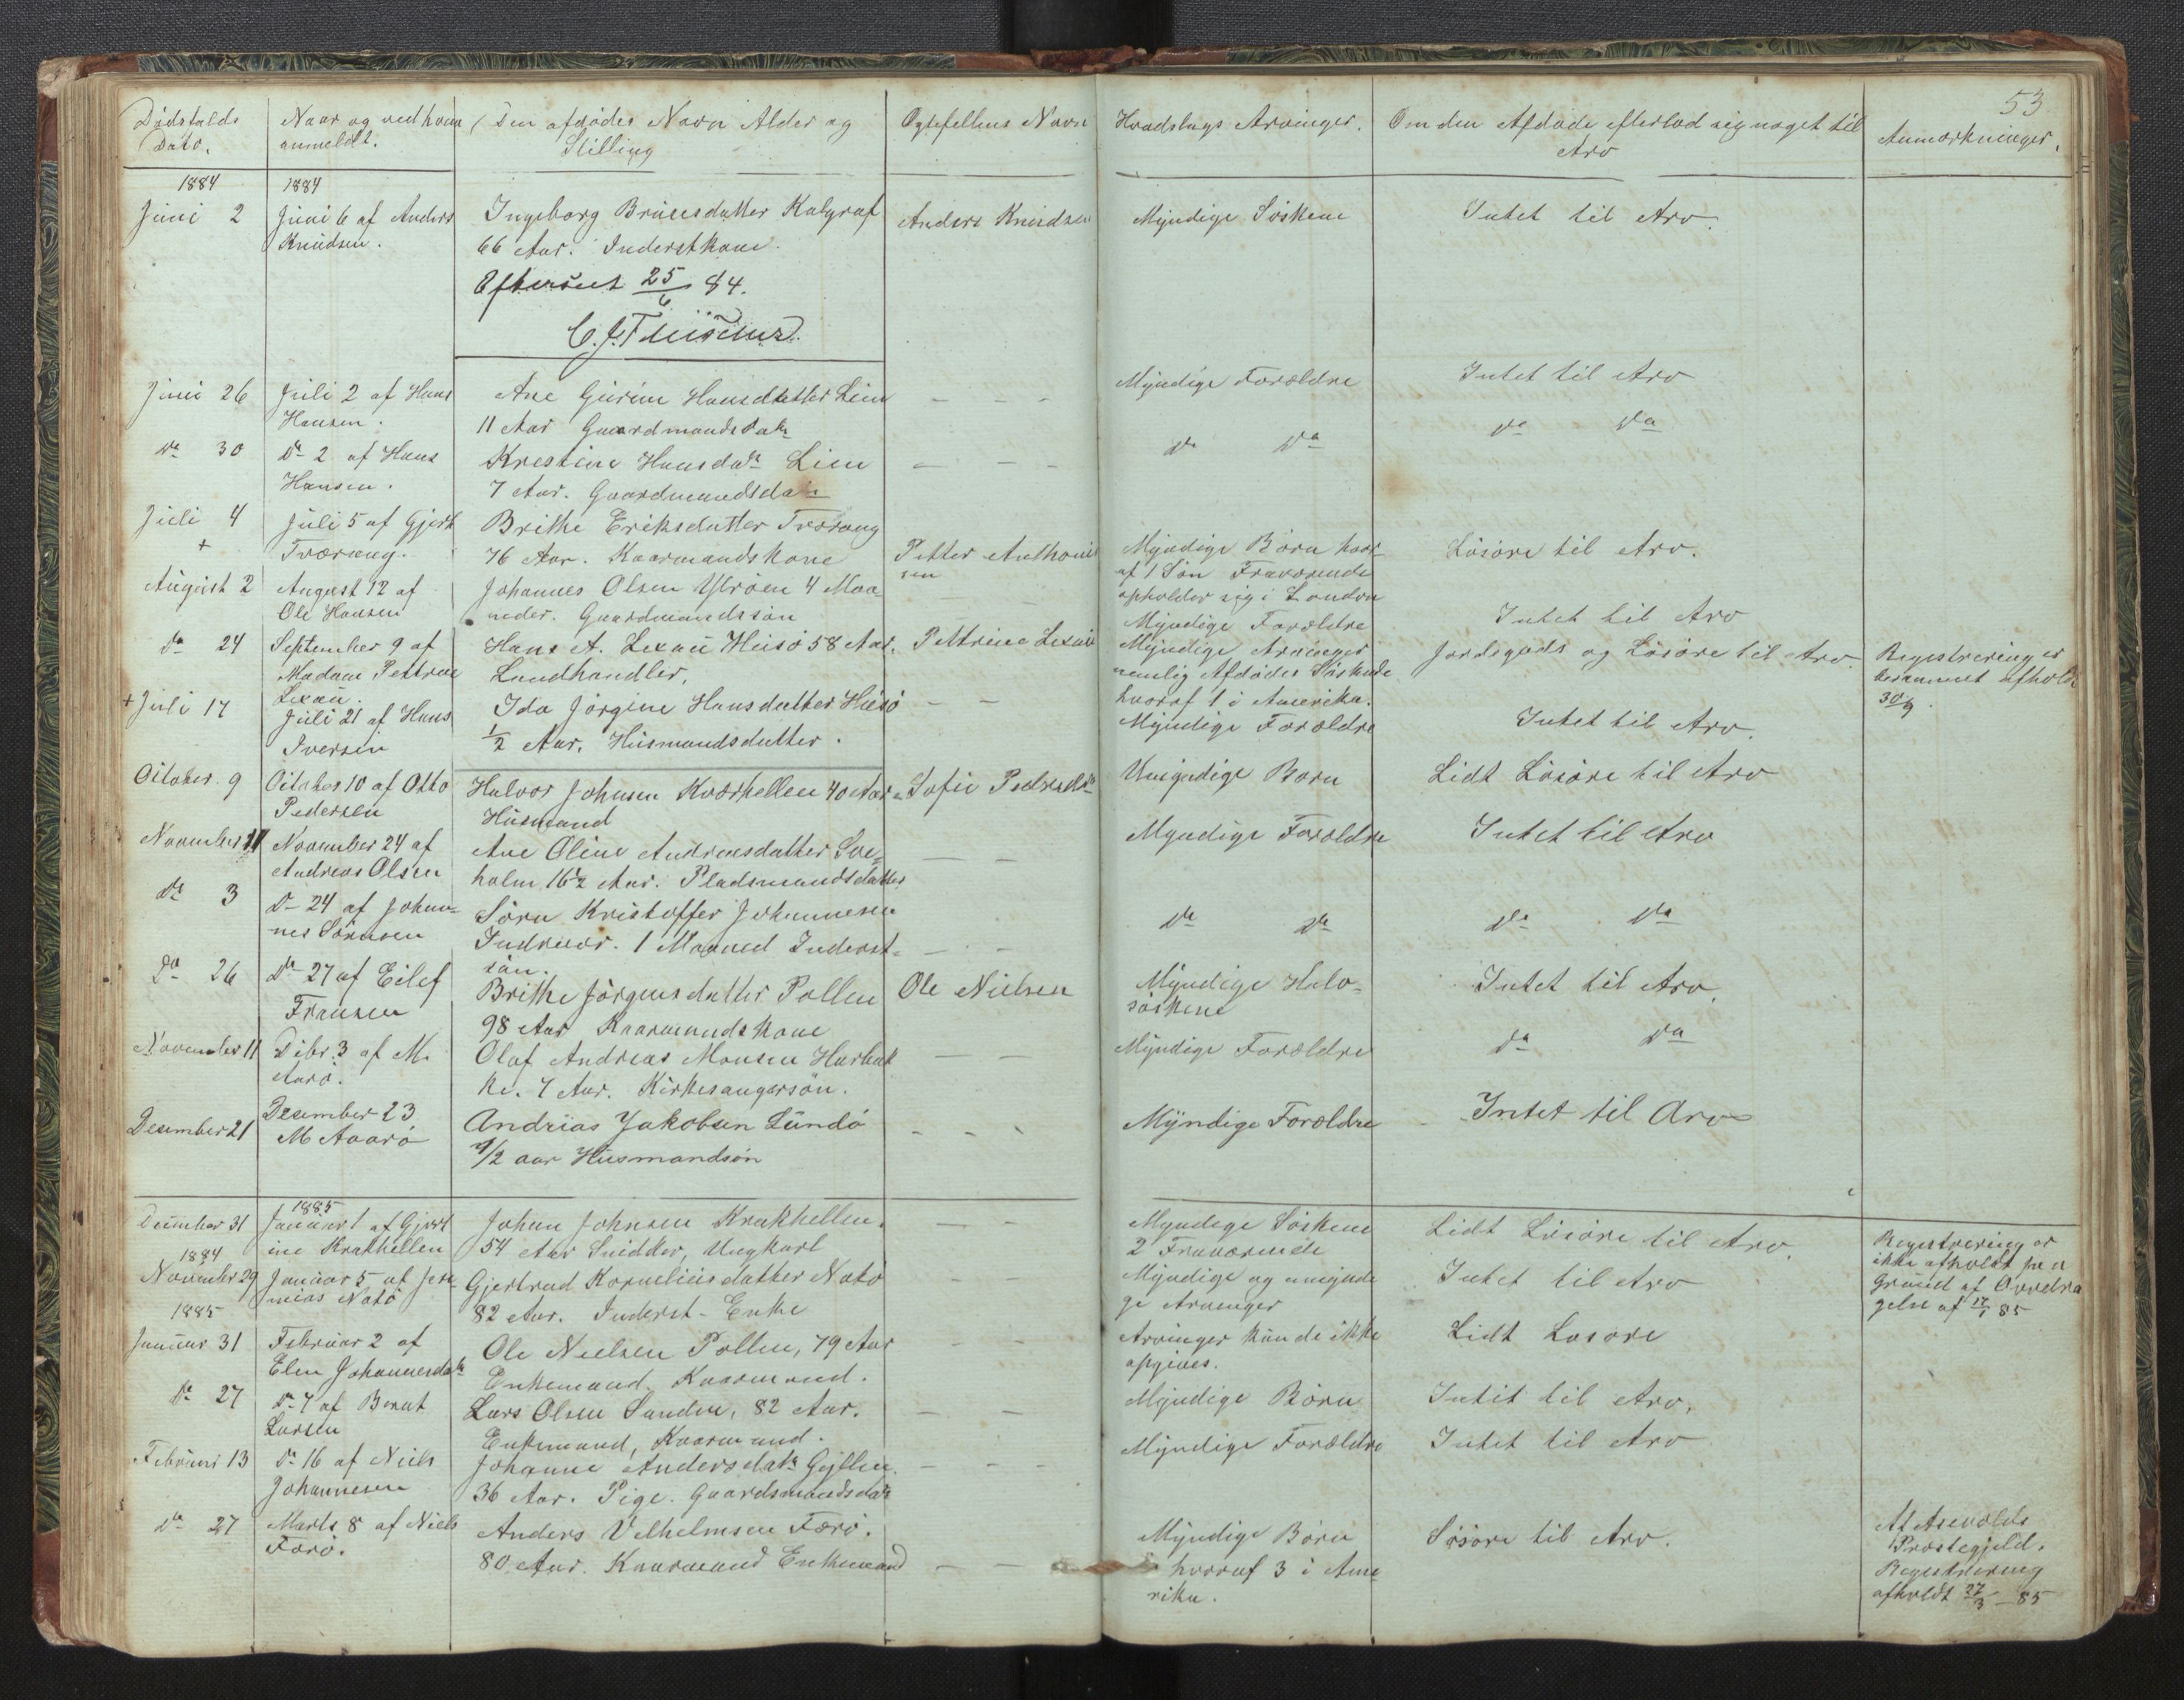 53
Dødsfalds Dato. | Naar og ved hvem anmeldt. | Den afdødes Navn Alder og Stilling | Ogtefellens Navn | Hvadslags Arvinger. | Om den Afdøde efterlod sig noget til Arv | Anmærkninger.
1884 | 1884
Juni 2 | Juni 6 af Anders | Ingeborg Brunsdatter | Anders Knudsen | Myndige Søskene | Intet til Arv.
Knudsen. | 66 Aar. Inderstkone.
Efterseet 25/6 84.
Juni 26 | Juli 2 af Hans | Ane Gurine Hansdatter Lien | – – – | Myndige Forældre | Intet til Arv
Hansen. | 11 Aar Gaardmandsdatr
Do 30 | Do 2 af Hans | Krestine Hansdatr Lien | – – – | Do Do | Do Do
Hansen. | 7 Aar. Gaardmandsdatr
Juli 4 | Juli 5 af Gjert | Brithe Eriksdatter Tværang
+ | Tværang. | 76 Aar. Kaarmandskone | Petter Anthoni | Myndige Børn hvor- | Løsøre til Arv.
sen | af 1 Søn Fraværende
opholder sig i London
August 2 | August 12 af | Johannes Olsen Ytrøen 4 Maa- | – – | Myndige Forældre | Intet til Arv
Ole Hansen | neder. Gaardmandssøn
Do 24 | September 9 af | Hans A. Lexau Husø 58 Aar. | Pettrine Lexau | Myndige Arvinger | Jordegods og Løsøre til Arv. | Registrering er
Madam Pettrine | Landhandler, | nemlig Afdødes Søskende | berammet afholdt
Lexau. | hvoraf 1 i Amerika. | 30/9.
+ Juli 17 | Juli 21 af Hans | Ida Jørgine Hansdatter Husø | – – | Myndige Forældre | Intet til Arv.
Iversen | 1/2 Aar. Husmandsdatter.
Oitober 9 | Oitober 10 af Otto | Halvor Johnsen Kværhellen 40 Aar | Sofie Pedersdr | Umyndige Børn | Lidt Løsøre til Arv
Pedersen | Husmand
November 11 | November 24 af | Ane Oline Andreasdatter | – – | Myndige Forældre | Intet til Arv
Andreas Olsen | holm 16 1/2 Aar. Pladsmandsdatter
Do 3 | Do 24 af Johan- | Sørn Kristoffer Johannesen | Do Do | Do Do
nes Sørnsen | Indrevær. 1 Maaned Inderst- | – –
søn.
Do 26 | Do 27 af Eilef | Brithe Jørgensdatter Pollen | Ole Nielsen | Myndige Halv- | Intet til Arv.
Fransen | 98 Aar Kaarmandskone | søskene
November 11 | Dcbr. 3 af M. | Olaf Andreas Monsen Harbak | – – | Myndige Forældre | Do Do
Aarø. | ke. 7 Aar. Kirkesangersøn.
Desember 21 | Desember 23 | Andrias Jakobsen Lundø | – – – | Myndige Forældre | Intet til Arv
M Aarø | 1/2 aar Husmandsøn
1885
December 31 | Januar 1 af Gjert | Johan Johnsen Krakhellen. | – – | Myndege Søskene | Lidt Løsøre til Arv. | Registrering er
1884 | ine Krakhellen | 54 Aar Snidker, Ungkarl | 2 Fraværende | ikke afholdt paa
November 29 | Januar 5 af Jere | Gjertrud Korneliusdatter Natø | – – | Myndige og umyndi | Intet til Arv | Grund af Overdra
1885 | mias Natø | 82 Aar. Inderst-Enke | ge Arvinger | gelse af 17/1 85
Januar 31 | Februar 2 af | Ole Nielsen Pollen, 79 Aar | – – | Arvinger kunde ikke | Lidt Løsøre
Elen Johannesdatr | Enkemand Kaarmand. | opgives.
Do 27 | Do 7 af Bernt | Lars Olsen Sanden, 82 Aar. | – – | Myndige Børn | Intet til Arv.
Larsen | Enkemand, Kaarmand.
Februar 13 | Do 16 af Niels | Johanne Andersdatr | – – – | Myndige Forældre | Intet til Arv
Johannesen | 36 Aar. Pige. Gaardsmandsdatr
Do 27 | Marts 8 af Niels | Anders Velhelmsen Færø. | Myndige Børn | Løsøre til Arv. | At Asevolds
Færø. | 80 Aar. Kaarmand Enkemand | – – | hvoraf 3 i Ame | Præstegjeld.
rika. | Registrering
afholdt 27/3 – 85